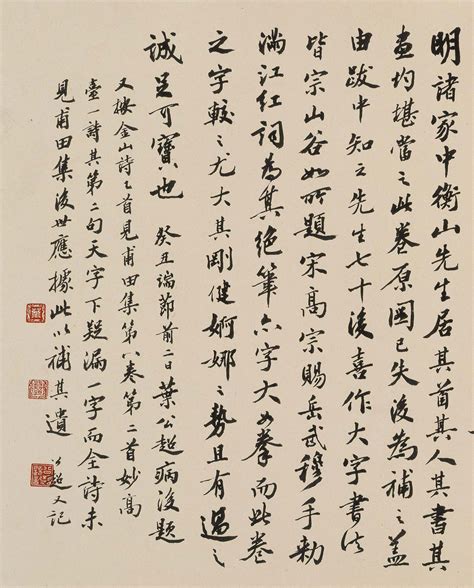 明諸家中衡山先生居其首其人其書其
畫均堪當之此卷原圖已失後為補之蓋
由跋中知之先生七十後喜作大字書法
皆宗山谷如所題宋高宗賜岳武穆手勅
滿江紅詞為其絕筆六字大如拳而此卷
之字較之尤大其剛健婀娜之勢且有過之
誠足可寶也 癸丑端節前二日葉公超病後題
又按金山詩之首見甫田集第八卷第二首妙高
臺一詩其第二句天字下疑漏一字而全詩未
見甫田集後世應據此以補其遺 公超又記